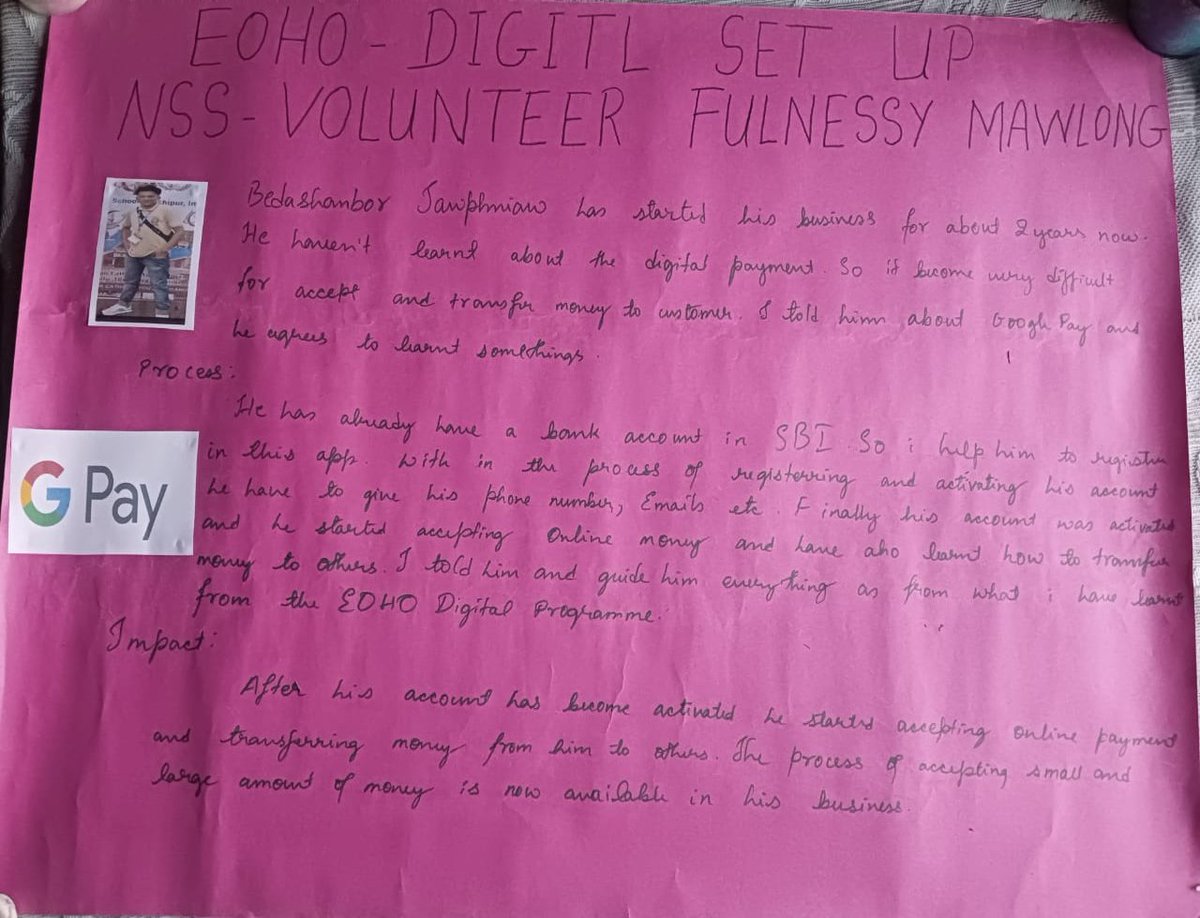 EOHO - DIGITL SET UP
NSS - VOLUNTEER FULNESSY MAWLONG
Bedashanbor Jawphniaw has started his business for about 2 years now.
He haven't learnt about the digital payment. So it become very difficult
for accept and transfer money to customer. I told him about Google Pay and
he agrees to learnt somethings.
Process:
He has already have a bank account in SBI. So i help him to register
in this app. With in the process of registerring and activating his account
he have to give his phone number, Emails etc. Finally his account was activated
G Pay
and he started accepting Online money and have also learnt how to transfer
money to others. I told him and guide him everything as from what i have learnt
from the EOHO Digital Programme.
Impact:
After his account has become activated he started accepting online payment
and transferring money from him to others. The process of accepting small and
large amount of money is now available in his business.